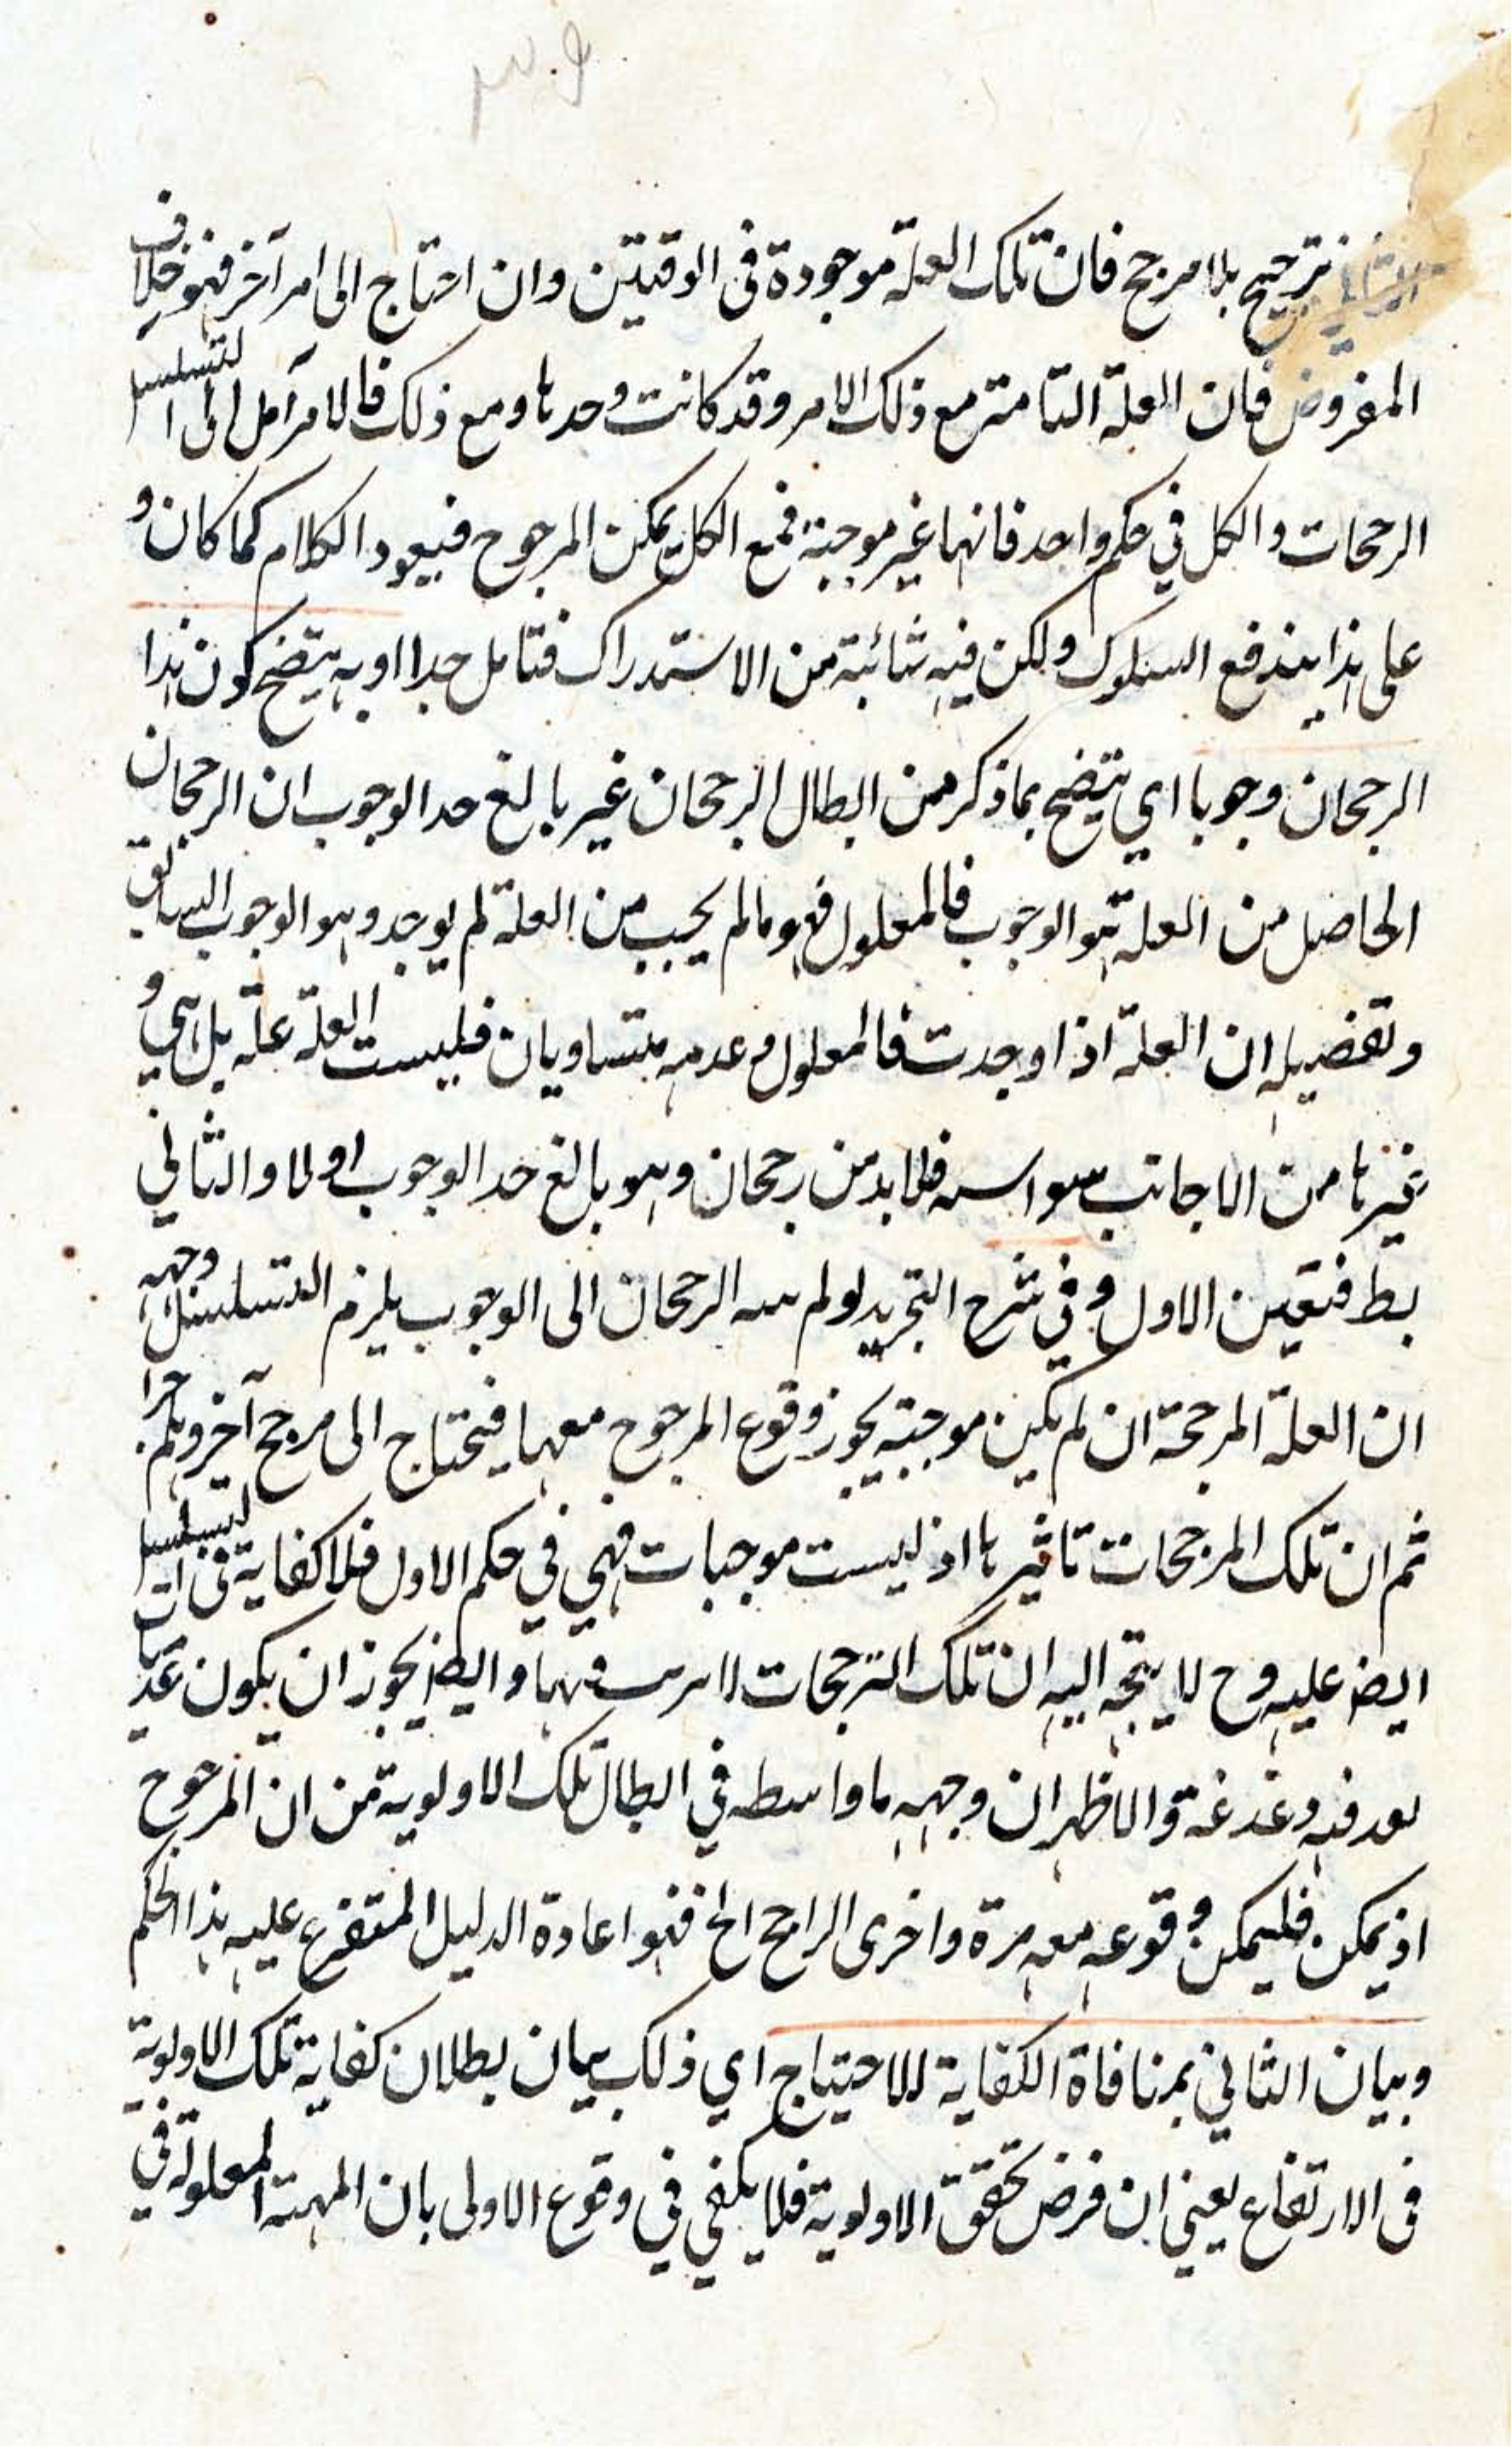 ترجيح بلا مرجح فان تلك العلة موجودة فى الوقتين وان احتاج الى امر آخر فهو خلاف
المفروض فان العلة التامة مع ذلك الامر وقد كانت وحدها ومع ذلك فالامر آمل الى التسلسل
الرجحات والكل في حكم واحد فانها غير موجبة فمع الكل يمكن المرجوح فيعود الكلام كما كان و
على هذا يندفع السلوك ولكن فيه شائبة من الاستدراك فتامل جدا او به يتضح كون هذا
الرجحان وجوبا اي يتضح بما ذكر من ابطال الرجحان غير بالغ حد الوجوب ان الرجحان
الحاصل من العلة هو الوجوب فالمعلول فهو مالم يجب من العلة لم يوجد وهو الوجوب السابق
وتفضيله ان العلة اذا وجدت فالمعلول وعدمه متساويان فليست العلة علة بل هي و
غيرها من الاجانب سواسية فلابد من رجحان وهو بالغ حد الوجوب اولا والثاني
بط فتعين الاول وفي شرح التجريد لو لم ينته الرجحان الى الوجوب يلزم التسلسل وجهه
ان العلة المرجحة ان لم يكن موجبة يجوز وقوع المرجوح معها فيحتاج الى مرجح آخر وهلم جرا
ثم ان تلك المرجحات تاثيرها اذ ليست موجبات فهي في حكم الاول فلا كفاية فى التسلسل
ايضا عليه وح لا يتجه اليه ان تلك الترجحات لا فيها وايضا يجوز ان يكون عدميات
بعد فيه دغدغة والاظهر ان وجهه ما واسطه في ابطال تلك الاولوية من ان المرجوح
اذ يمكن فليمكن وقوعه معه مرة واخرى الراجح الخ فهو اعادة الدليل المتفرع عليه هذا الحكم
وبيان الثاني بمنافاة الكفاية للاحتياج اي ذلك بيان بطلان كفاية تلك الاولوية
فى الارتفاع يعني ان فرض تحقق الاولوية فلا يكفي في وقوع الاولى بان المهية المعلولة في